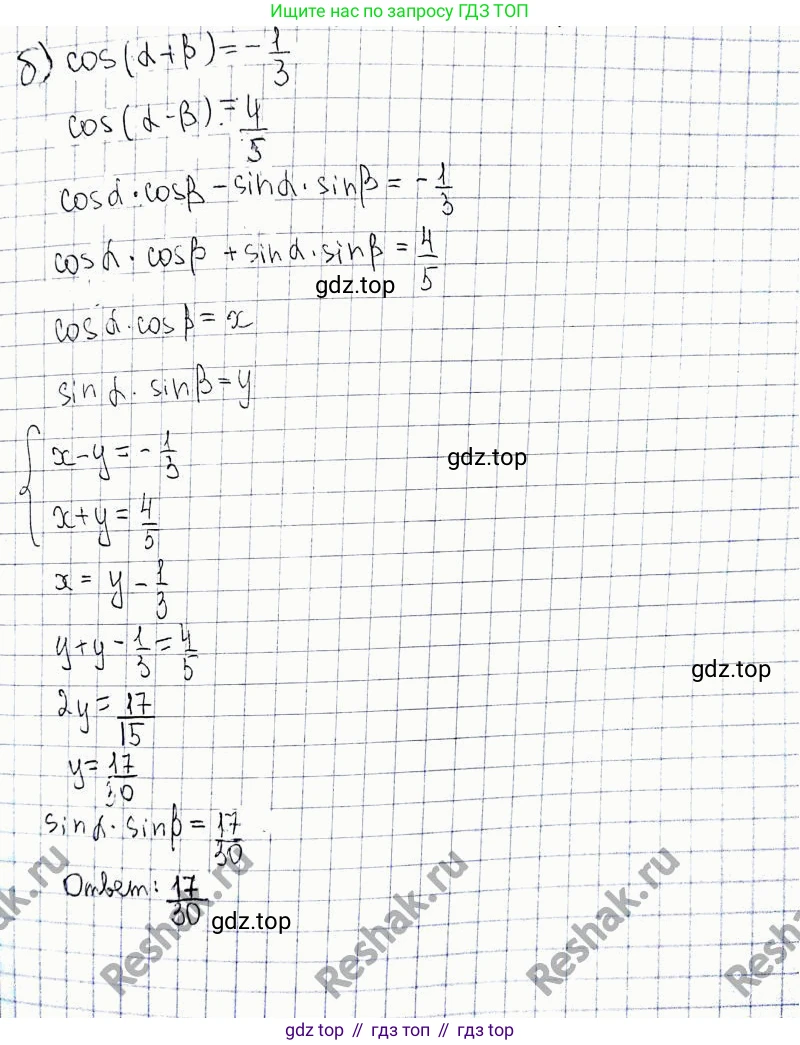 Ищите нас по запросу ГДЗ ТОП
б) cos(α+β)=-1/3
cos(α-β)=4/5
cosα·cosβ-sinα·sinβ=-1/3
cosα·cosβ+sinα·sinβ=4/5
gdz.top
cosα·cosβ=x
sinα·sinβ=y
{x-y=-1/3
gdz.top
x+y=4/5
x=y-1/3
y+y-1/3=4/5
gdz.top
2y=17/15
y=17/30
sinα·sinβ=17/30
Ответ: 17/30
gdz.top
Reshak.ru
Reshak.ru
Reshak.ru
Reshak.ru
Reshak
gdz top // гдз топ // gdz top // гдз top